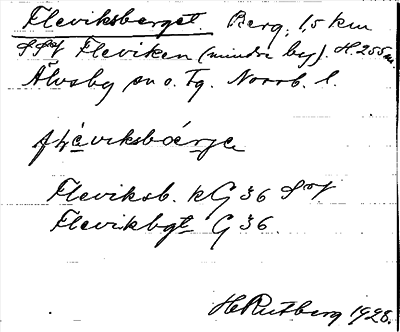 Fleviksberget. Berg, 1,5 km
SSV Fleviken (mindre by). H. 255 m.
Älvsby sn o. Tg. Norrb. l.
Fleviksb. kG 36 SV
Flevikbgt G 36.
H Rutberg 1928.